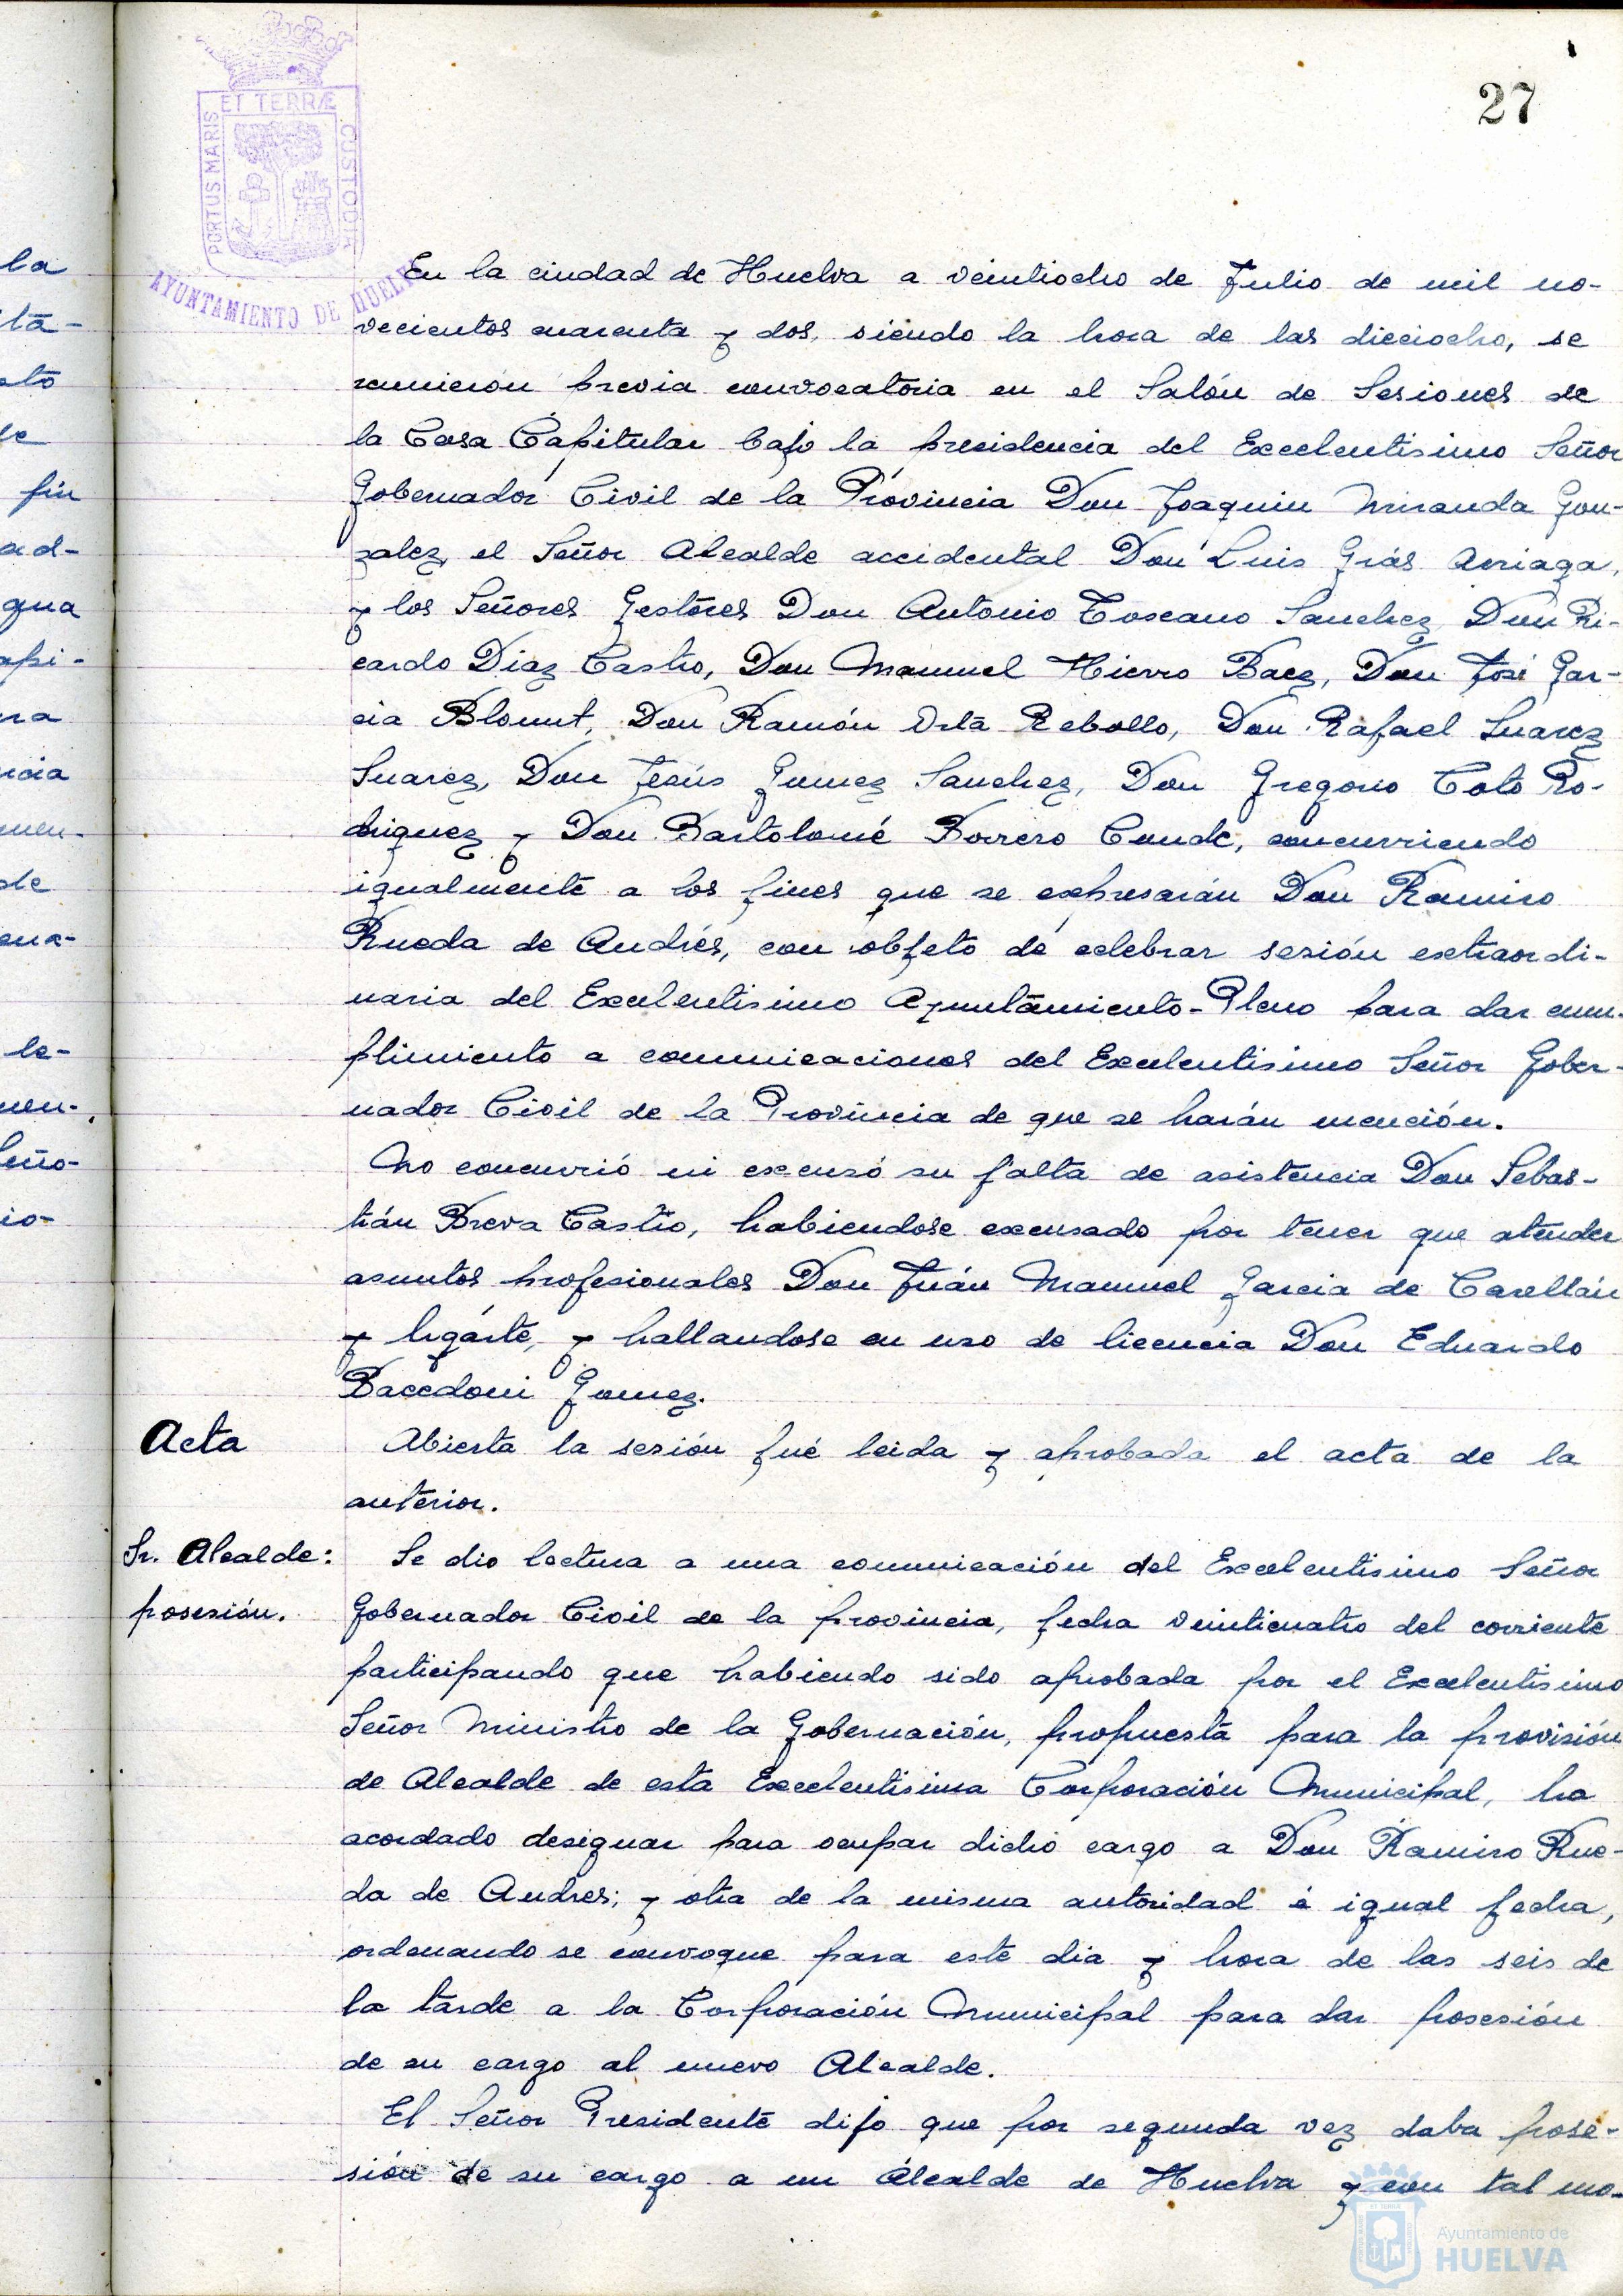 27
PORTUS MARIS ET TERRÆ CUSTODIA
AYUNTAMIENTO DE HUELVA
la
ta-
fin
ad-
gua
ra
ncia
de
le-
io-
En la ciudad de Huelva a veintiocho de Julio de mil no-
vecientos cuarenta y dos, siendo la hora de las dieciocho, se
reunieron previa convocatoria en el Salón de Sesiones de
la Casa Capitular bajo la presidencia del Excelentisimo Señor
Gobernador Civil de la Provincia Don Joaquin Miranda Gon-
zalez, el Señor Alcalde accidental Don Luis Grás Arriaga,
y los Señores Gestores Don Antonio Toscano Sanchez, Don Ri-
cardo Diaz Castro, Don Manuel Hierro Baez, Don José Gar-
cia Blount, Don Ramón Orta Rebollo, Don Rafael Suarez
Suarez, Don Jesús Gomez Sanchez, Don Gregorio Coto Ro-
driguez y Don Bartolomé Borrero Conde, concurriendo
igualmente a los fines que se expresarán Don Ramiro
Rueda de Andrés, con objeto de celebrar sesión extraordi-
naria del Excelentisimo Ayuntamiento-Pleno para dar cum-
plimiento a comunicaciones del Excelentisimo Señor Gober-
nador Civil de la Provincia de que se harán mención.
No concurrió ni excusó su falta de asistencia Don Sebas-
tián Breva Castro, habiendose excusado por tener que atender
asuntos profesionales Don Juán Manuel Garcia de Casellán
y Ugarte, y hallandose en uso de licencia Don Eduardo
Bacedoni Gomez.
Acta
Abierta la sesión fué leida y aprobada el acta de la
anterior.
Sr. Alcalde:
posesión.
Se dio lectura a una comunicación del Excelentisimo Señor
Gobernador Civil de la provincia, fecha veinticuatro del corriente
participando que habiendo sido aprobada por el Excelentisimo
Señor Ministro de la Gobernación, propuesta para la provisión
de Alcalde de esta Excelentisima Corporación Municipal, ha
acordado designar para ocupar dicho cargo a Don Ramiro Rue-
da de Andres; y otra de la misma autoridad é igual fecha,
ordenando se convoque para este dia y hora de las seis de
la tarde a la Corporación Municipal para dar posesión
de su cargo al nuevo Alcalde.
El Señor Presidente dijo que por segunda vez daba pose-
sión de su cargo a un Alcalde de Huelva y con tal mo-
Ayuntamiento de
HUELVA